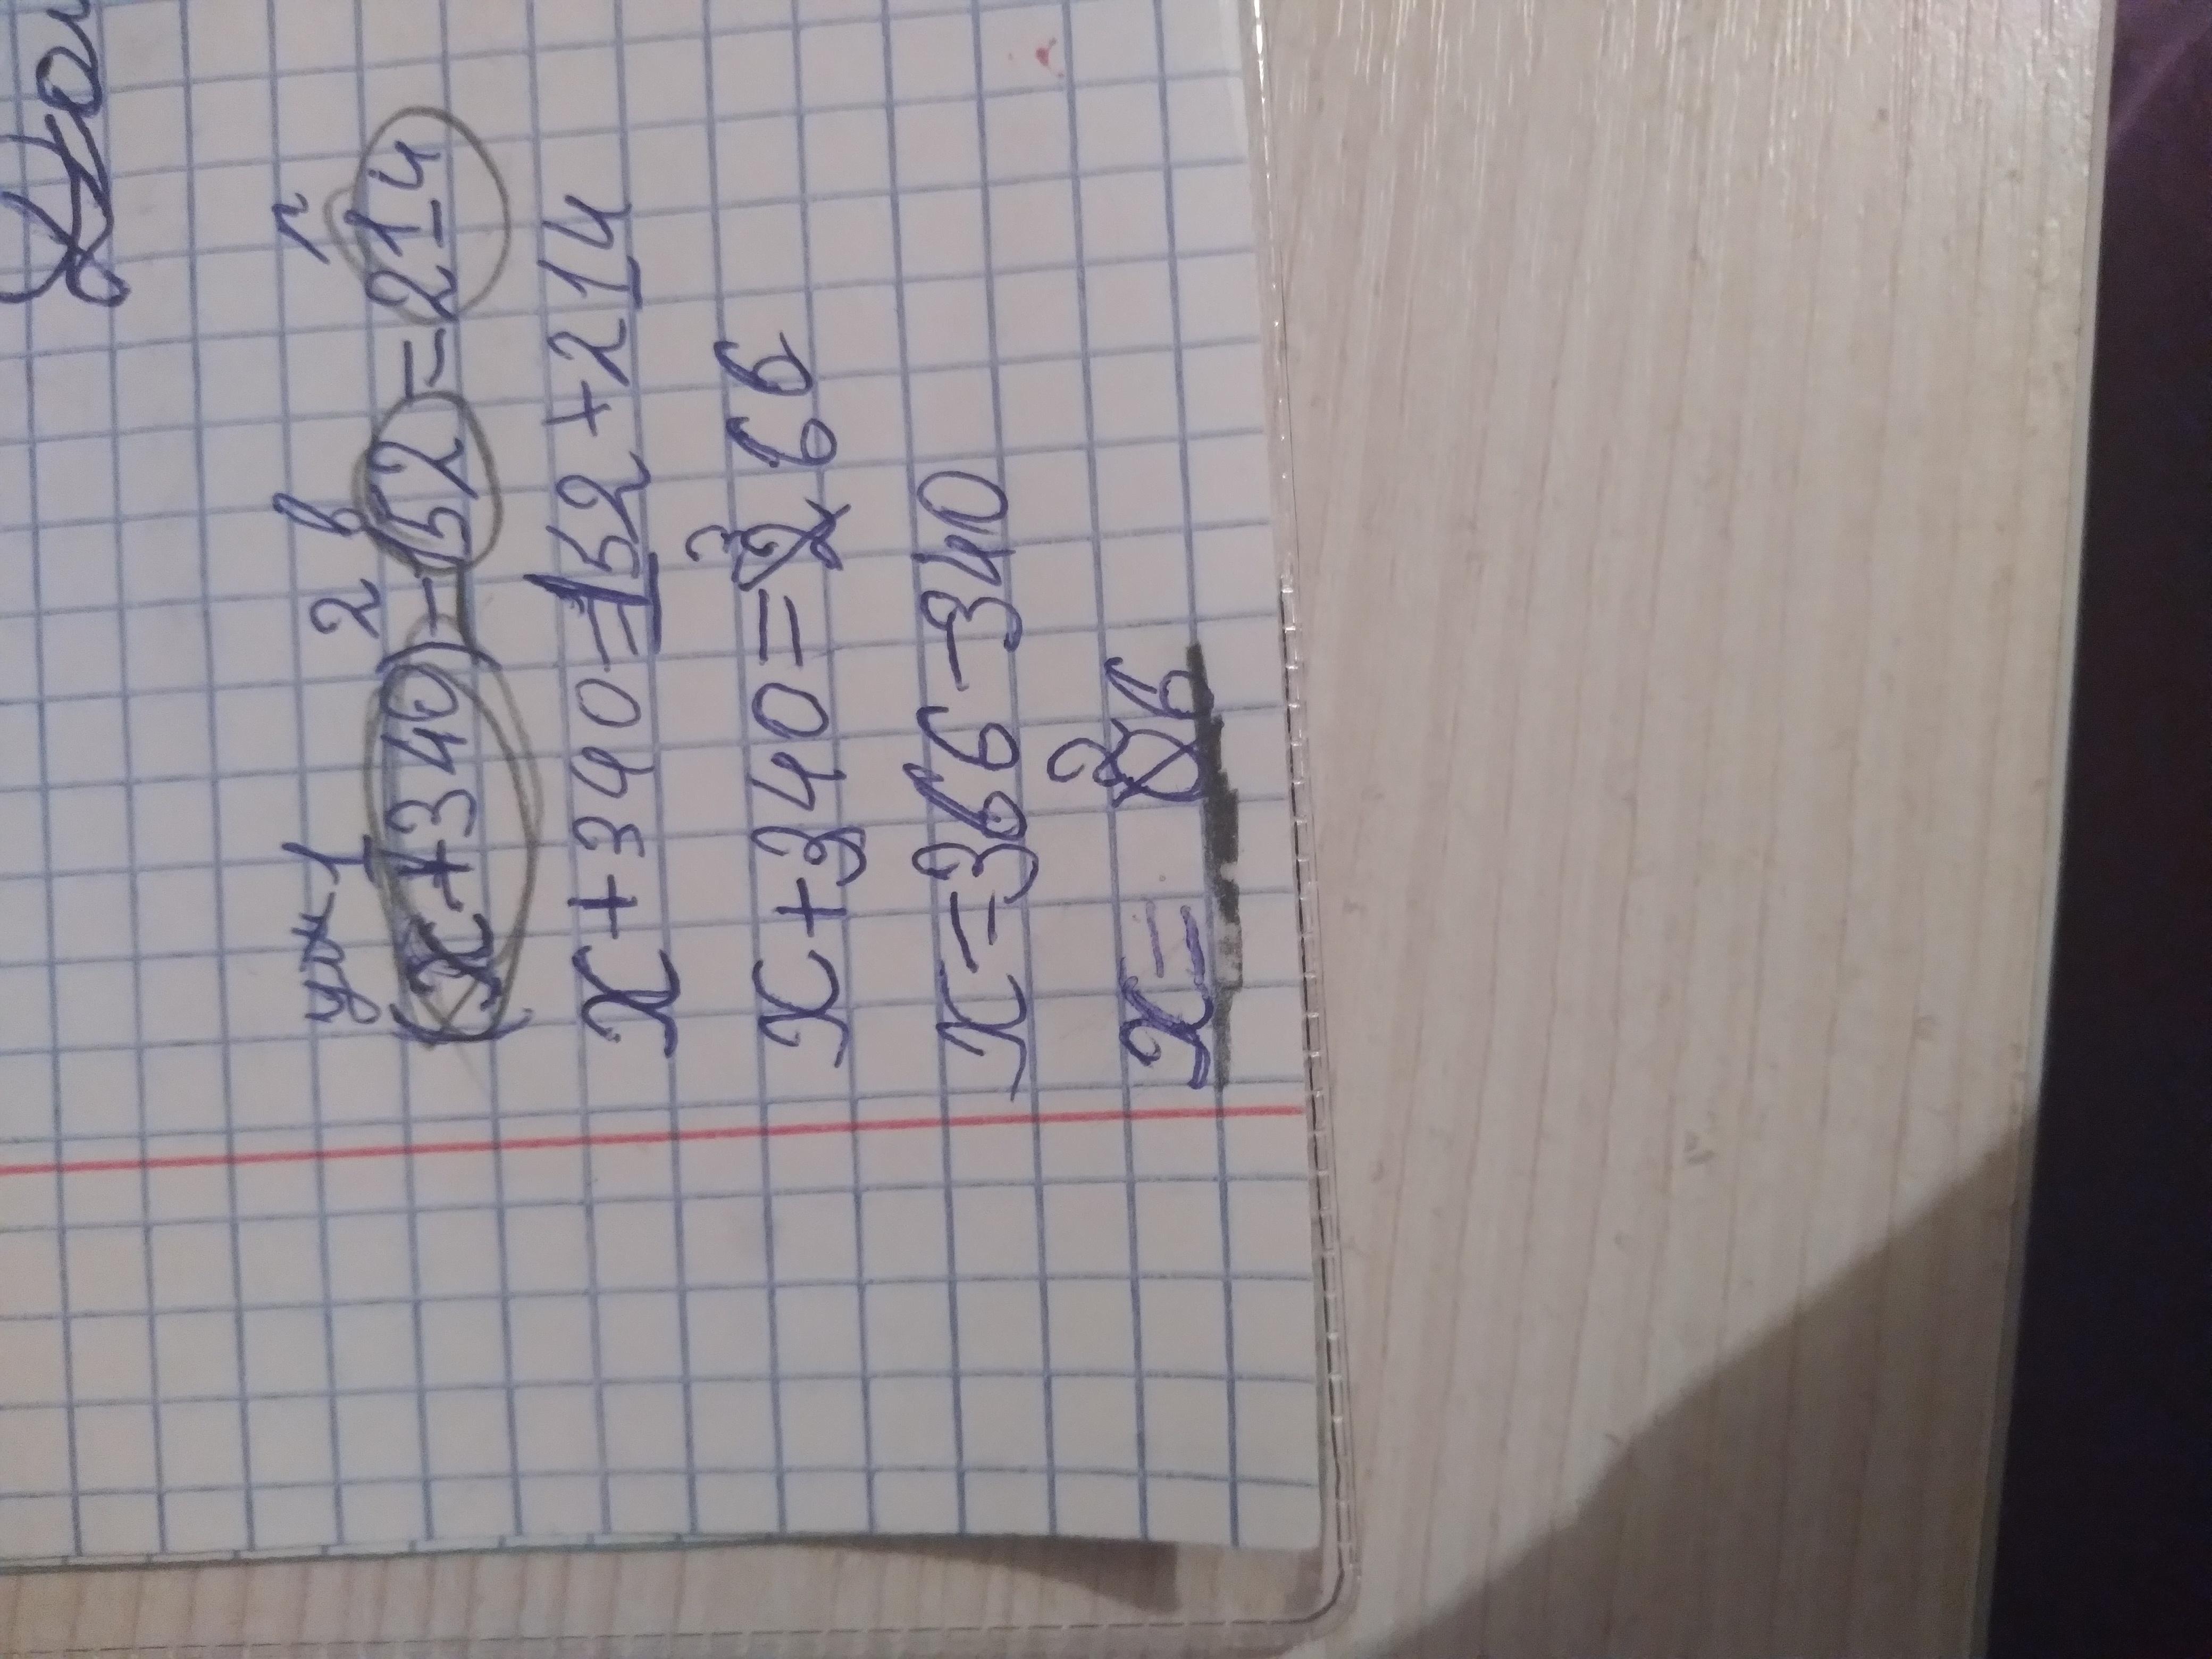 ум 1 2 в г
(x+340)-152=214
x+340=152+214
x+340=366
x=366-340
x=26